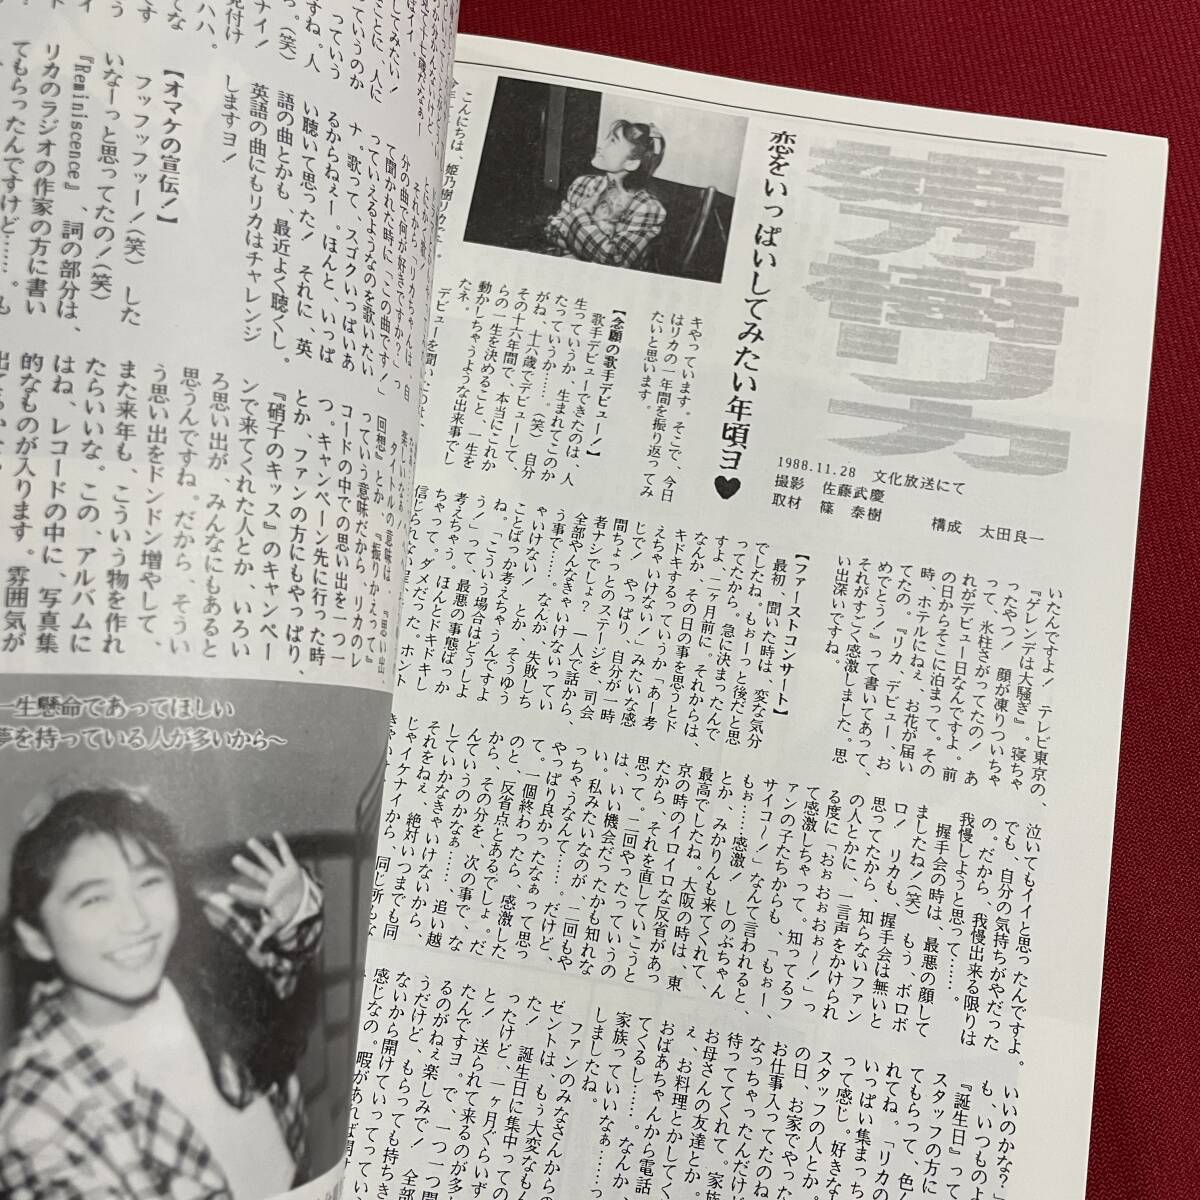 姫乃樹リカ
恋をいっぱいしてみたい年頃ヨ♥
1988.11.28 文化放送にて
撮影 佐藤武慶
取材 篠 泰樹
構成 太田良一
こんにちは、姫乃樹リカデ
キやっています。そこで、今日
はリカの一年間を振り返ってみ
たいと思います。
【念願の歌手デビュー！】
歌手デビューできたのは、人
生っていうか、生まれてこのか
たっていうか……。（笑）自分
がね、十六歳でデビューして、
その十六年間で、本当にこれか
らの一生を決めること、一生を
動かしちゃうような出来事でし
たネ。
デビューを聞いたのは、
いたんですよ！ テレビ東京の、
『ゲレンデは大騒ぎ』。寝ちゃ
ったやつ！ 顔が凍りついちゃ
って、氷柱さがってたの！ あ
れがデビュー日なんですよ。前
の日からそこに泊まって、その
時、ホテルにねぇ、お花が届い
てたの。『リカ、デビュー、お
めでとう！』って書いてあって、
それがすごく感激しました。思
い出深いですね。
【ファーストコンサート】
最初、聞いた時は、変な気分
でしたね。もぉーっと後だと思
ってたから。急に決まったんで
すよ、二ヶ月前に。それからは、
なんか、その日の事を思うとド
キドキするっていうか「あー考
えちゃいけない！」みたいな感
じで！ やっぱり、自分が一時
間ちょっとのステージを、司会
者ナシでしょ？ 一人で話から、
全部やんなきゃいけないってい
う事で……。なんか、失敗しち
ゃいけない！ とか、そうゆう
ことばっか考えちゃうんですよ
「こういう場合はどうしよ
う！」って、最悪の事態ばっか
考えちゃう。ほんとドキドキし
ちゃって。ダメだった。ホント
泣いてもイイと思ったんですよ。
でも、自分の気持ちがやだった
の。だから、我慢出来る限りは
我慢しようと思って……。
握手会の時は、最悪の顔して
ましたね！（笑） もう、ボロボ
ロ！ リカも、握手会は無いと
思ってたから、知らないファン
の人とかに、一言声をかけられ
る度に「おぉおぉおぉ～！」っ
て感激しちゃって。知ってるフ
ァンの子たちからも、「もぉー、
サイコ～！」なんて言われると、
もぉ……感激！ しのぶちゃん
とか、みかりんも来てくれて、
最高でしたね。大阪の時は、東
京の時のイロイロな反省があっ
たから、それを直していこうと
思って、二回やったっていうの
は、いい機会だったかも知れな
い。私みたいなのが、二回もや
っちゃうなんて……。だけど、
やっぱり良かったなぁって思っ
て。一個終わったら、感激した
のと、反省点とあるでしょ。だ
から、その分を、次の事で、な
していかなきゃいけないから、
ていうのかなぁ……、追い越
それをねぇ、絶対いつまでも同
じゃイケナイから、同じ所もな
いいのかな？」
も、いつものよ
『誕生日』って
スタッフの方に
てもらって、色
れてね。「リカの
いっぱい集まっち
って感じ。好きな
スタッフの人とか。
の日、お家でやった
お仕事入ってたのね
なっちゃったんだけど
待っててくれて。家族
お母さんの友達とか。
ぇ、お料理とかしてく
おばあちゃんから電話
てくるし……。なんか、
家族っていいなぁ、
しましたね。
ファンのみなさんからの
ゼントは、もう大変なもん
た！ 誕生日に集中っての
ったけど、一ヶ月ぐらいず
と！ 送られて来るのが多
たんですヨ。で、一つ一つ開
るのがねぇ楽しみで！ 全部
うだけど、もらっても持ちき
ないから開けていってってい
感じなの。暇があれば開け
分の曲で何が好きですか？」っ
て聞かれた時に「この曲です！」
っていえるようなのを歌いたい
ナ。歌って、スゴクいっぱいあ
るからねぇー。ほんと、いっぱ
い聴いて思った！ それに、英
語の曲とかも、最近よく聴くし。
英語の曲にもリカはチャレンジ
しますヨ！
【オマケの宣伝！】
フッフッフッー！（笑） した
いなーっと思ってたの！（笑）
『Reminiscence』、詞の部分は、
リカのラジオの作家の方に書い
てもらったんですけど……。も
タイトルの意味は、『思い出、
回想』とか、『振りかえって』
っていう意味だから、リカのレ
コードの中での思い出を一つ一
つ。キャンペーン先に行った時
とか、ファンの方にもやっぱり、
『硝子のキッス』のキャンペー
ンで来てくれた人とか、いろい
ろ思い出が、みんなにもあると
思うんですね。だから、そうい
う思い出をドンドン増やして、
また来年も、こういう物を作れ
たらいいな。この、アルバムに
はね、レコードの中に、写真集
的なものが入ります。雰囲気が
一生懸命であってほしい
夢を持っている人が多いから～